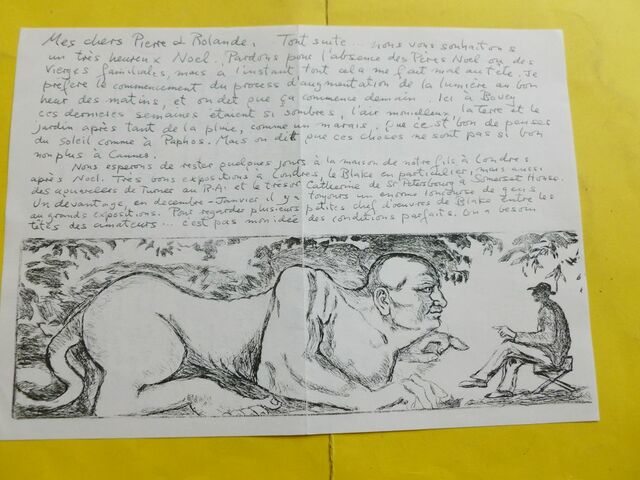 Mes chers Pierre & Rolande, Tout suite... nous vous souhaitons
un très heureux Noel. Pardons pour l'absence des Pères Noel ou des
Vierges familiales, mais à l'instant tout cela me fait mal au tete. Je
prefere le commencement du process d'augmentation de la lumière au bon
heur des matins, et on dit que ça commence demain. Ici à Bovey
ces dernieres semaines etaient si sombres, l'air mouelleux, la terre et le
jardin après tant de la pluie, comme un marais. Que ce st bon de penser
du Soleil comme à Paphos. Mais on dit que ces choses ne sont pas si bon
non plus à Cannes.
Nous esperons de rester quelques jours à la maison de nôtre fils à Londres
après Noel. Très bons expositions à Londres, le Blake en particulier, mais aussi
des aquarelles de Turner au R.A. et le tresor Catherine de St Petersbourg à Somerset House.
Un devantage, en decembre-Janvier il y a toujours un enorme de gens
au grands expositions. Pour regarder plusieurs petites chef d'oeuvres de Blake entre les
têtes des amateurs... c'est pas mon idée des conditions parfaits. On a besoin